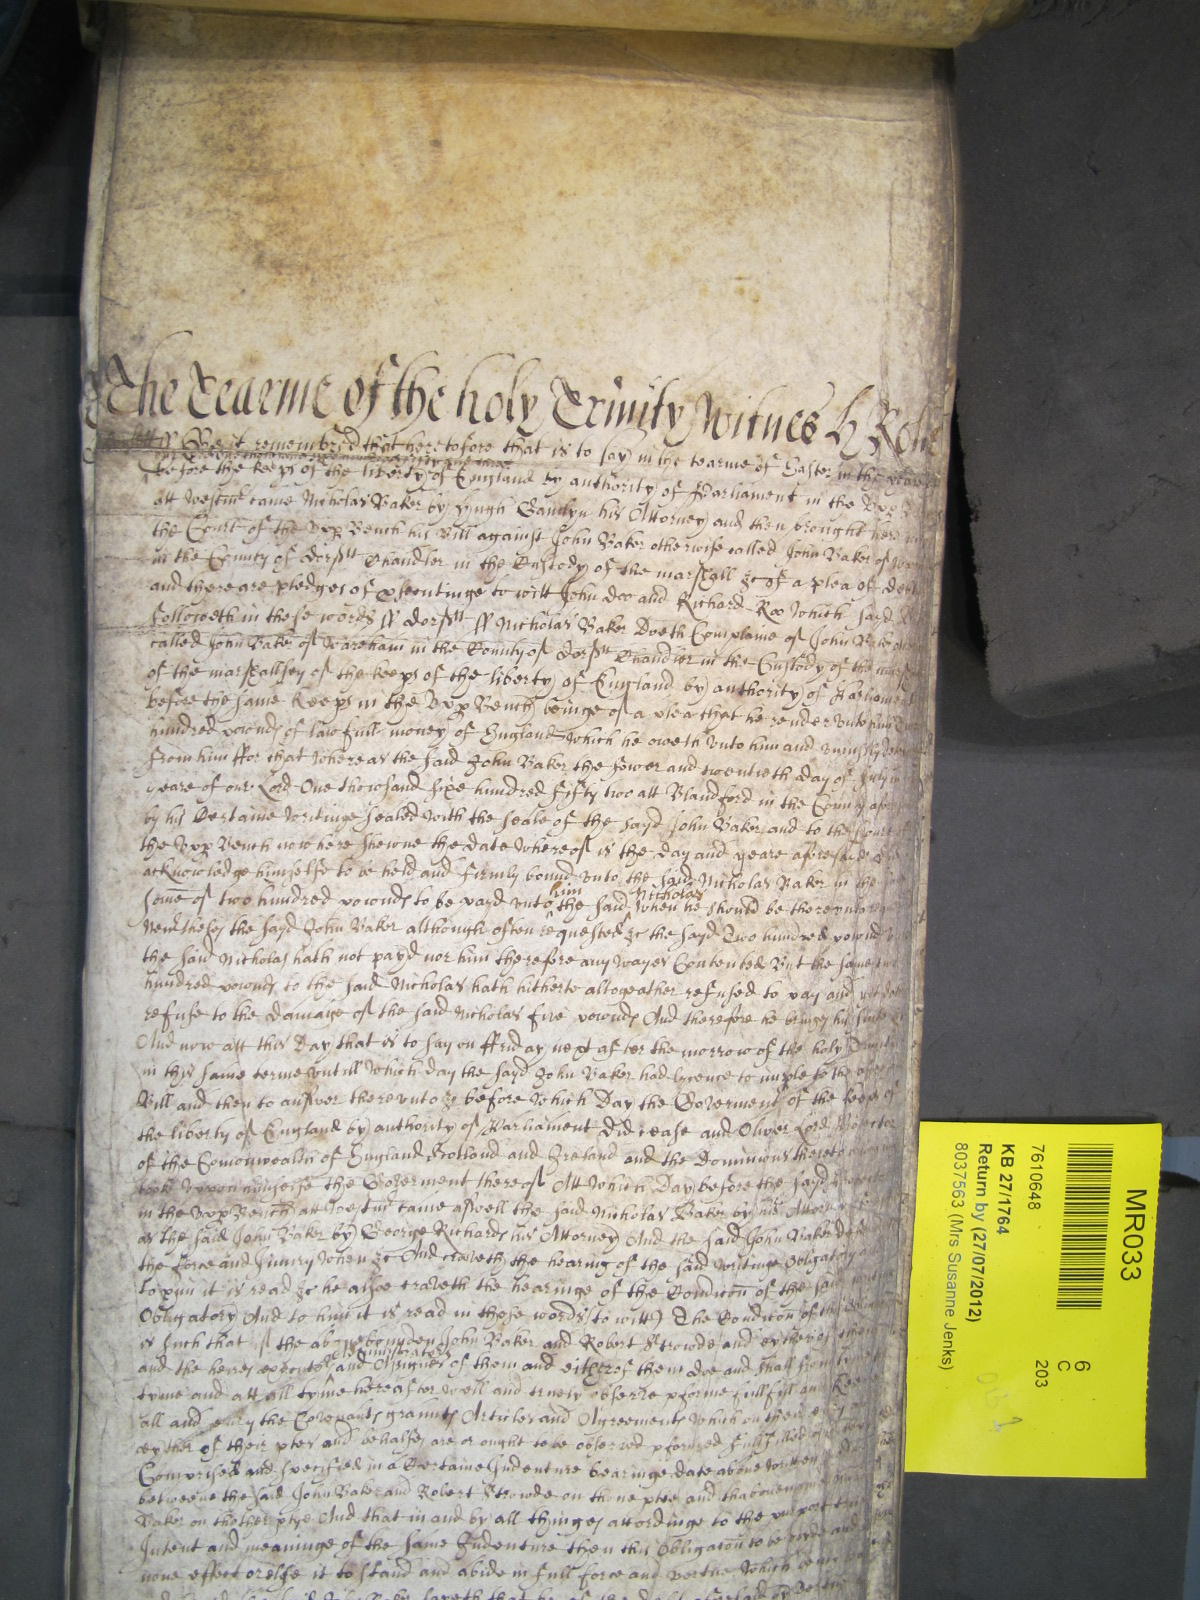 The Tearme of the holy Trinity Witnes H Rolle
ss Be it remembred that heretofore that is to say in the tearme of Easter in the yeare
before the keeps of the liberty of England by authority of Parliament in the Upp
att Westmr came Nicholas Baker by Hugh his Attorney and then brought here in
the Court of the Upp Bench his Bill against John Baker otherwise called John Baker of
in the County of Dorsett Chandler in the Custody of the marshall &c of a plea of debt
and there are pledges of psecutinge to witt John doo and Richard Roo Which sayd
followeth in these words ss dorsett ss Nicholas Baker Doeth Complaine of John Baker
called John Baker of Wareham in the County of Dorsett Chandler in the Custody of the
of the marshallsey of the keeps of the liberty of England by authority of Parliament
before the same keeps in the Upp Bench beinge of a plea that he render unto him
hundred pounds of lawfull money of England Which he oweth unto him and unjustly
from him ffor that Whereas the said John Baker the fower and twentieth day of July
yeare of our Lord One thowsand sixe hundred fifty two att Blandford in the County
by his Certaine Writinge sealed with the seale of the sayd John Baker and to the Court
the Upp Bench now here shewne the date Whereof is the day and yeare aforesaid
acknowledge himselfe to be held and firmly bound unto the said Nicholas Baker in the
some of two hundred pounds to be payd unto him the said Nicholas When he should be thereunto
the sayd John Baker although often requested &c the sayd Two hundred pounds
the said Nicholas hath not payd nor him therefore any wayes Contented But the same
hundred pounds to the said Nicholas hath hitherto altogeather refused to pay and yet doth
refuse to the damage of the said Nicholas five pounds And therefore he brings his suite
And now att this Day that is to say on ffriday next after the morrow of the holy Trinity
in this same terme untill Which day the sayd John Baker had lycence to imple to the
Bill and then to answer thereunto &c before Which Day the Goverment of the keeps of
the liberty of England by authority of Parliament did cease and Oliver Lord Protector
of the Comonwealth of England Scotland and Ireland and the Dominions thereto
tooke uppon himselfe the Goverment thereof Att Which Day before the sayd
in the Upp Bench att Westmr came aswell the said Nicholas Baker by his Attorney
as the said John Baker by George Richards his Attorney And the said John Baker
the force and Injury When &c And craveth the hearing of the said Writinge Obligatory
to him it is read &c he alsoe craveth the hearinge of the Condicon of the said
Obligatory And to him it is read in those words (to witt) The Condicon of this
is such that if the above bounden John Baker and Robert Strowde and eyther of them
and the heires executors administrators and Assignes of them and either of them doe and shall from tyme to
tyme and att all tymes hereafter well and truely observe pforme fullfill and keepe
all and every the Covenants graunts Articles and Agreements Which on their
eyther of their ptes and behalfes are or ought to be observed pformed fullfilled
Comprised and specified in a Certaine Indenture bearinge date above written
betweene the said John Baker and Robert Strowde on thone ptee and
Baker on thother ptye And that in and by all thinges accordinge to the purport true
Intent and meaninge of the same Indenture then this Obligacon to be voyde and
none effect or else it to stand and abide in full force and vertue Which beinge
MR033
7610648
6
C
203
KB 27/1764
Return by (27/07/2012)
8037563 (Mrs Susanne Jenks)